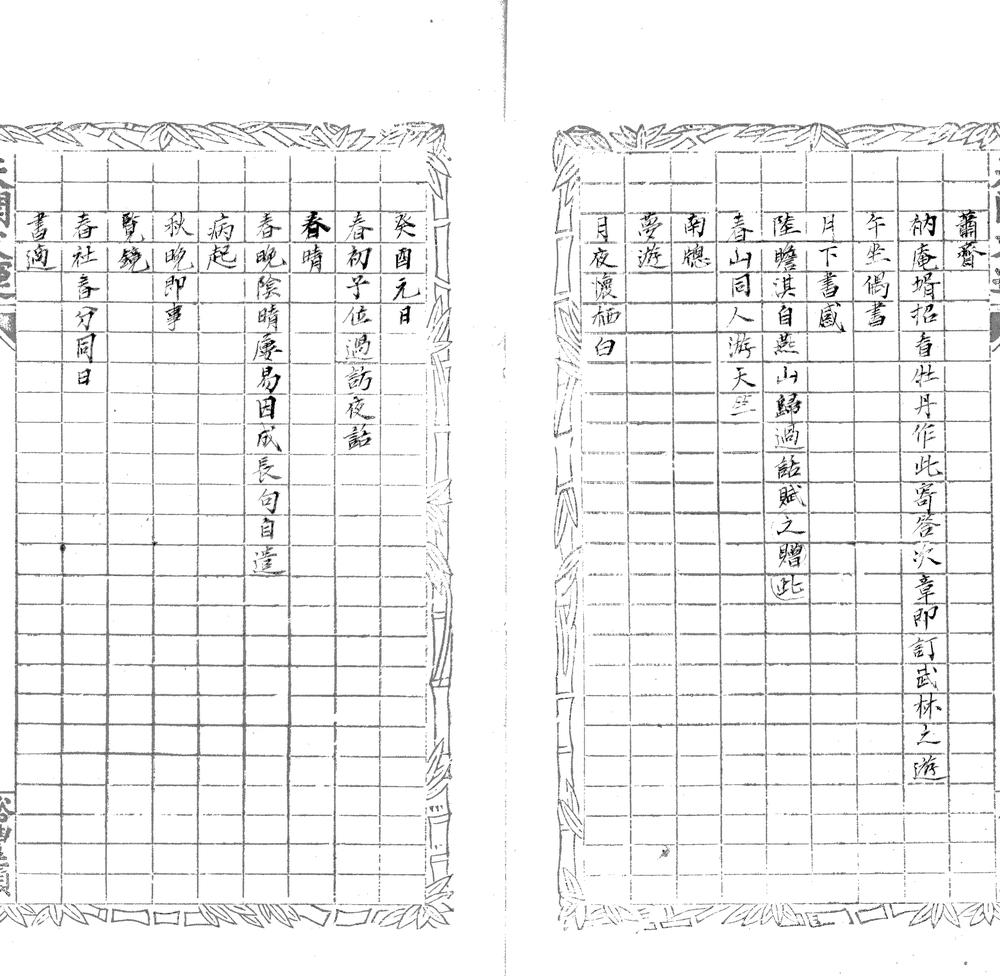 蕭齋
衲庵壻招看牡丹作此寄答次章即訂武林之遊
午坐偶書
月下書感
陸瞻淇自燕山歸過話賦之贈此
春山同人游天竺
南牕
夢游
月夜懷栖白
癸酉元日
春初子位過訪夜話
春晴
春晚陰晴屢易因成長句自遣
病起
秋晚即事
覽鏡
春社春分同日
書適